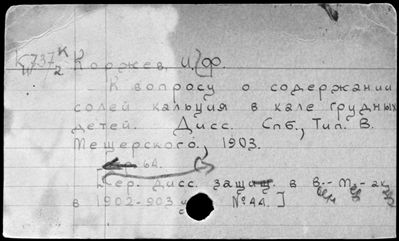 К 737 К Коржев, И. Ф.
К вопросу о содержании
солей кальция в кале грудных
детей. Дисс. Спб., Тип. В.
Мещерского, 1903.
64.
[Сер. дисс. защищ. в В.-М.-ак.
в 1902-903 № 44.]